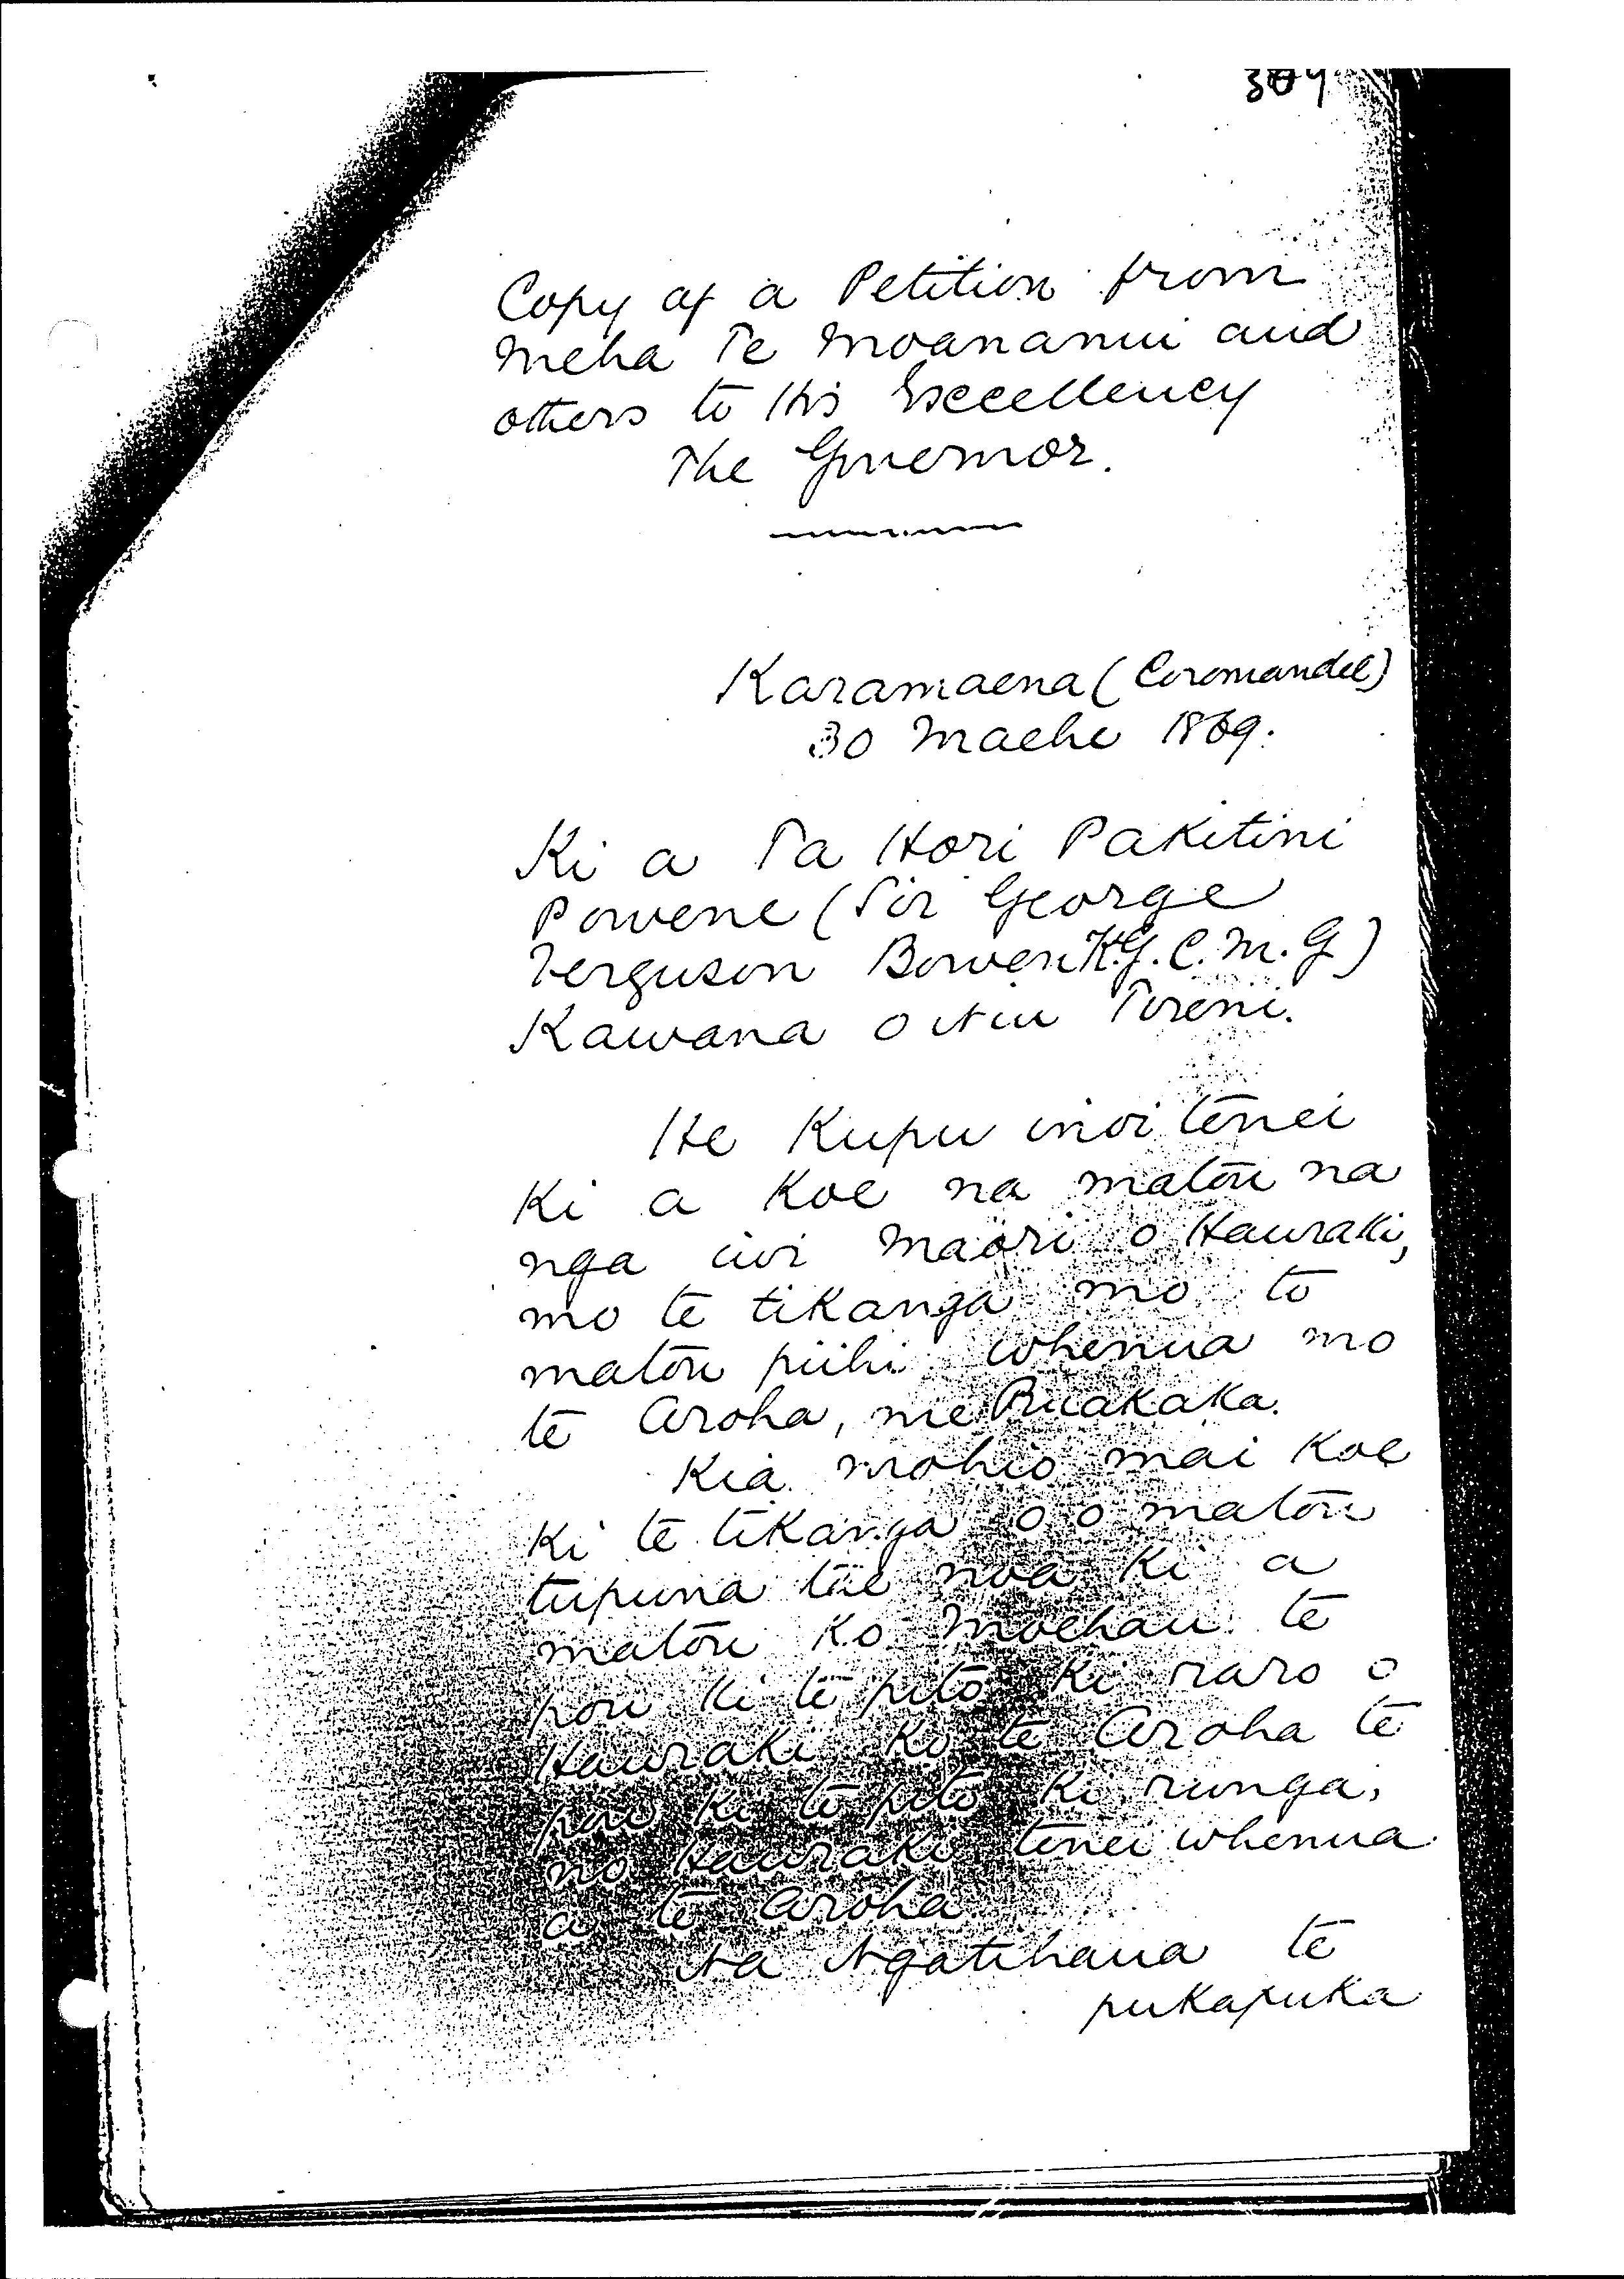 Copy of a Petition from
Meha Te Moananui and
others to His Excellency
The Governor.
Karamaena (Coromandel)
30 Maehe 1869.
Ki a Ta Hori Pakitini
Powene (Sir George
Ferguson Bowen K.G.C.M.G)
Kawana o Niu Tireni.
He Kupu inoi tenei
Ki a Koe na matou na
nga iwi Maori o Hauraki,
mo te tikanga mo to
matou piihi whenua mo
te Aroha, me Ruakaka.
Kia mohio mai Koe
Ki te tikanga o o matou
tupuna tae noa Ki a
matou Ko Moehau te
pou Ki te pito Ki raro o
Hauraki Ko te Aroha te
pou Ki te pito Ki runga,
no Hauraki tenei whenua
a te Aroha.
Na Ngatihaua te
pukapuka